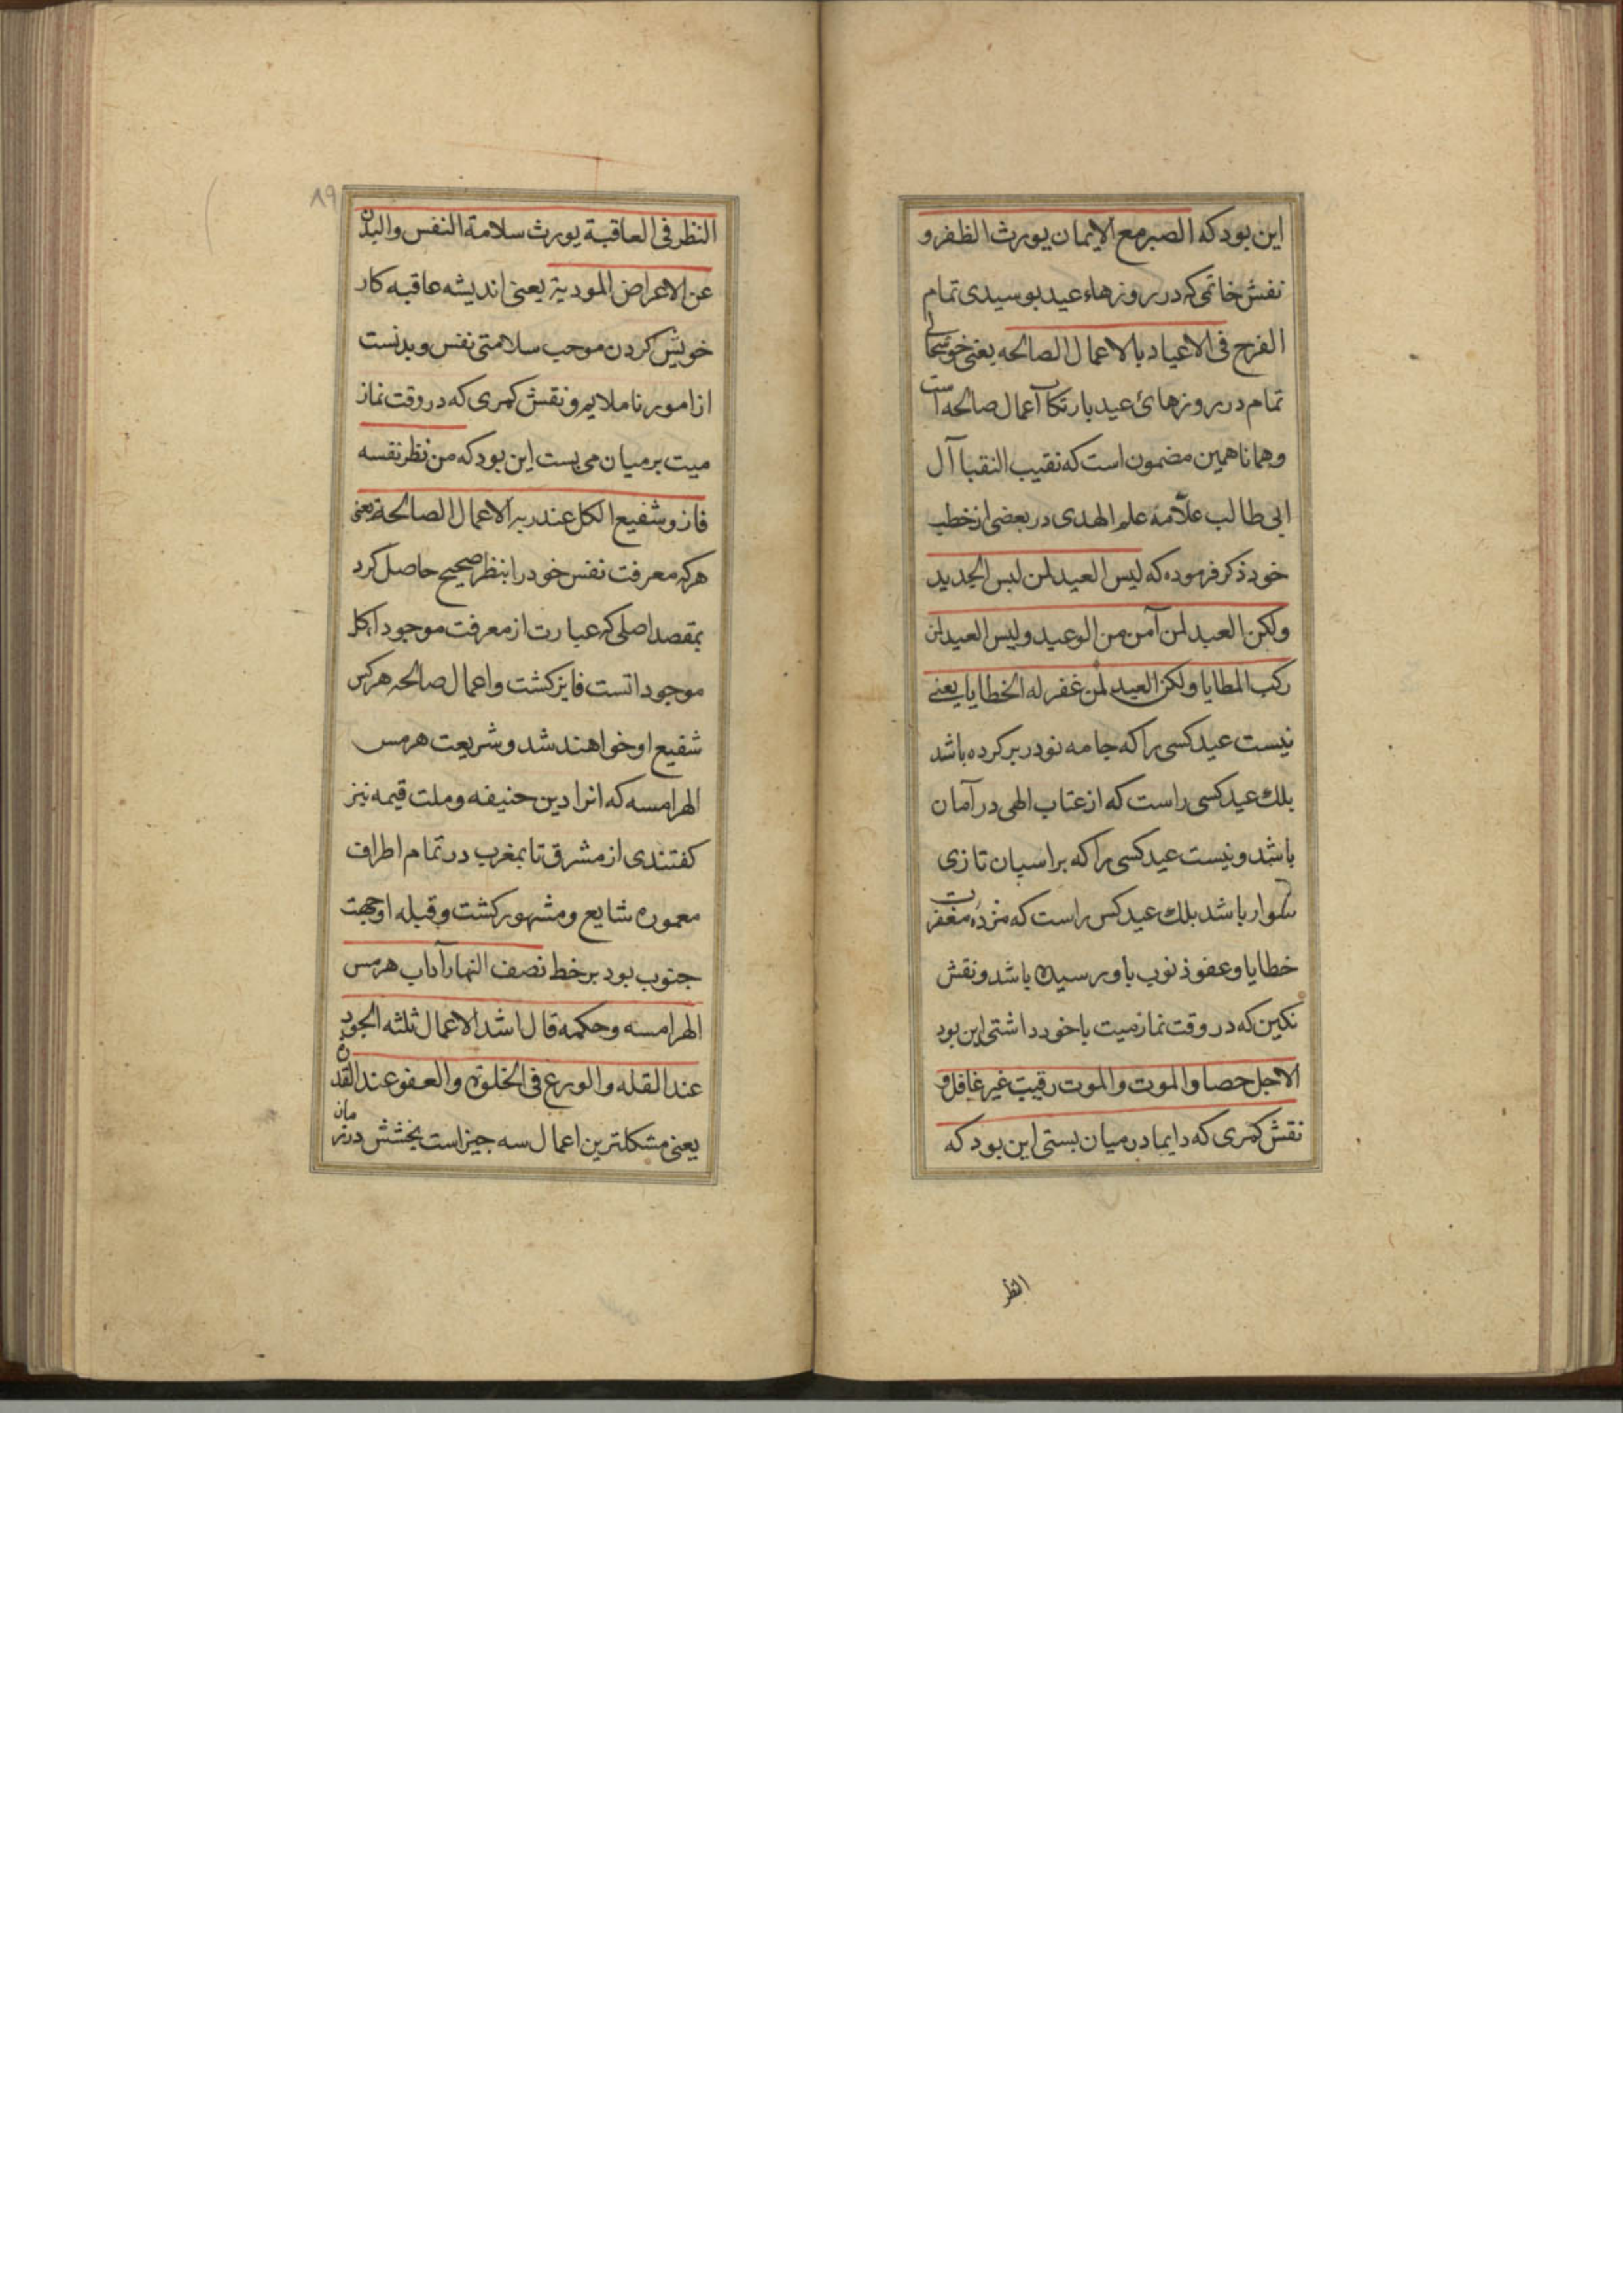 این بود که الصبر مع الایمان یورث الظفر و
نقش خاتمی که در روزهاء عید بوسیدی تمام
الفرح فی الاعیاد بالاعمال الصالحه یعنی خوشحالی
تمام در روزهائ عید بارتکاب اعمال صالحه است
و همانا همین مضمون است که نقیب النقبا آل
ابی طالب علّامة علم الهدی در بعضی از خطب
خود ذکر فرموده که لیس العید لمن لبس الجدید
ولکن العید لمن آمن من الوعید و لیس العید لمن
رکب المطایا ولکن العید لمن غفر له الخطایا یعنے
نیست عید کسی را که جامه نو در بر کرده باشد
بلك عید کسی راست که از عتاب الهی در آمان
باشد و نیست عید کسی را که بر اسپان تازی
سوار باشد بلك عید کس راست که مژده مغفرت
خطایا و عفو ذنوب باو رسیده باشد و نقش
نکین که در وقت نماز میت با خود داشتی این بود
الاجل حصاد الموت والموت رقیب غیر غافل و
نقش کمری که دایما در میان بستی این بود که
النظر
٨٩
النظر فی العاقبة یورث سلامة النفس والبدن
عن الاعراض المودیة یعنی اندیشه عاقبه کار
خویش کردن موجب سلامتی نفس و بدنست
از امور ناملایم و نقش کمری که در وقت نماز
میت بر میان می بست این بود که من نظر نفسه
فاز و شفیع الکل عند ربه الاعمال الصالحة یعنی
هرکه معرفت نفس خود را بنظر صحیح حاصل کرد
بمقصد اصلی که عبارت از معرفت موجود
موجوداتست فایز کشت و اعمال صالحه هرکس
شفیع او خواهند شد و شریعت هرمس
الهرامسه که انرا دین حنیفه و ملت قیمه نیز
کفتندی از مشرق تا بمغرب در تمام اطراف
معموره شایع و مشهور کشت و قبله او جهت
جنوب بود بر خط نصف النهار آداب هرمس
الهرامسه و حکمه قال اشد الاعمال ثلثه الجود
عند القله والورع فی الخلوة والعفو عند القدرة
یعنی مشکلترین اعمال سه جیز است بخشش در زمان